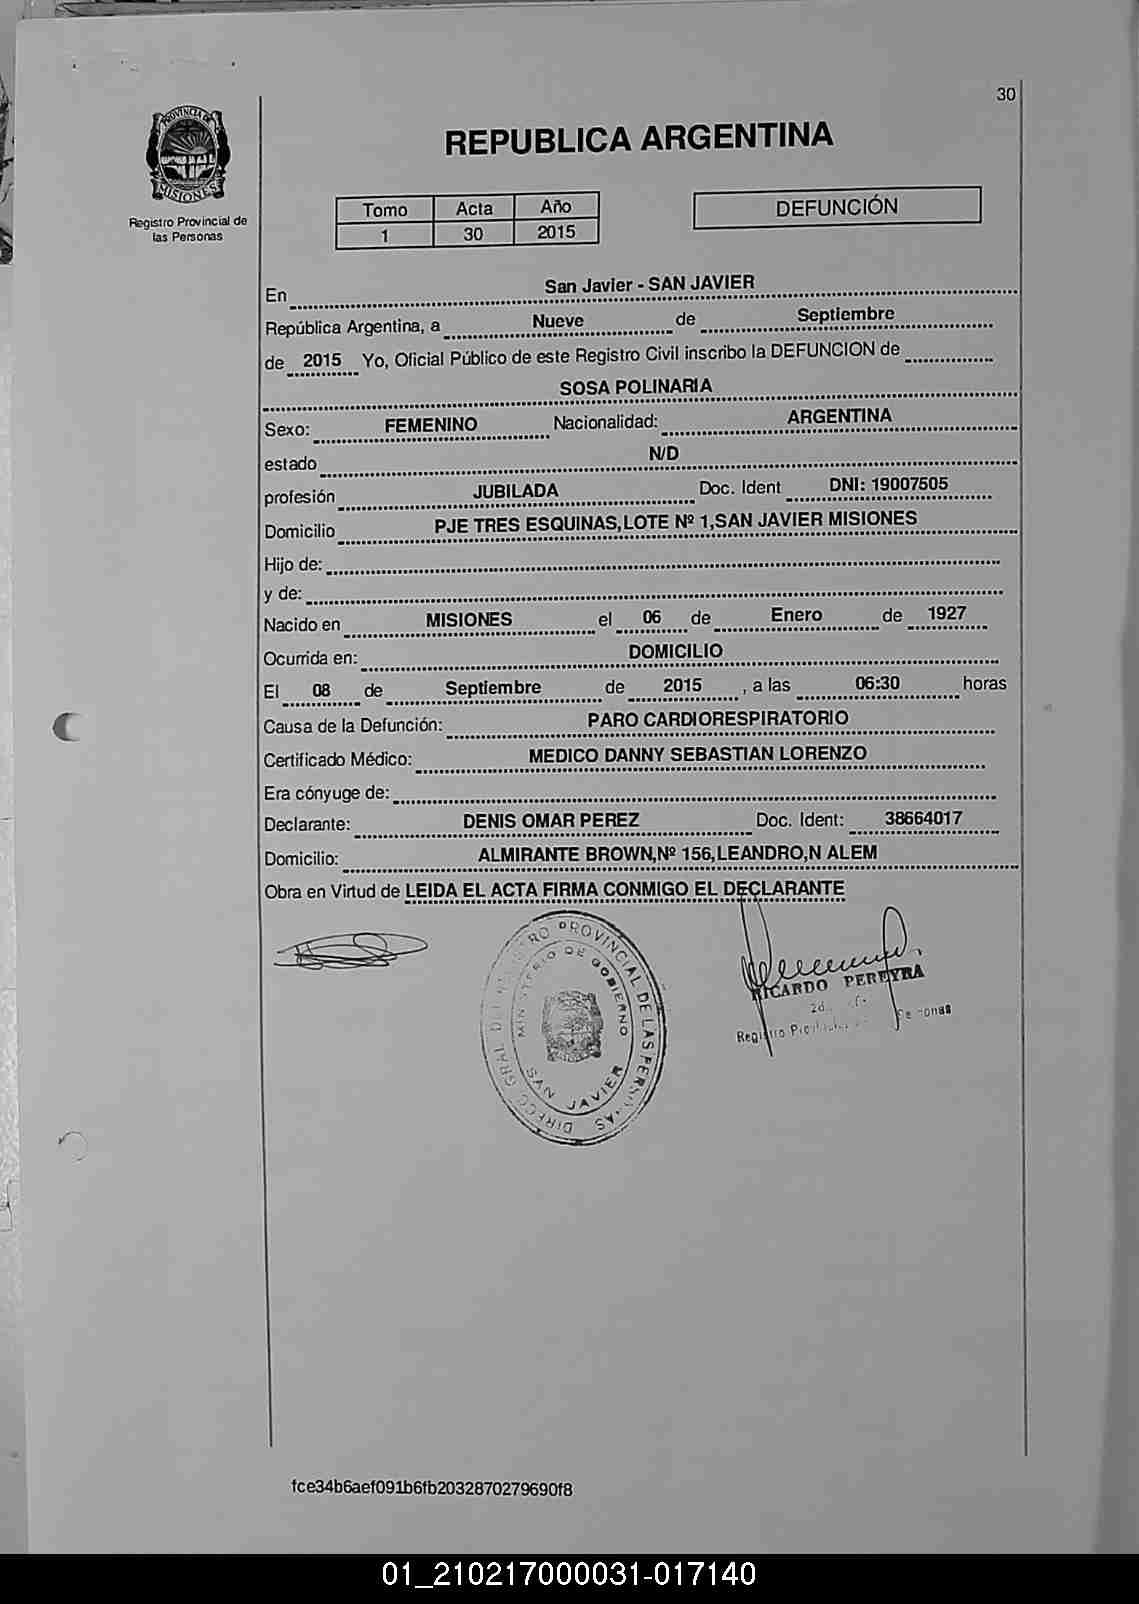 30
PROVINCIA DE
MISIONES
Registro Provincial de
las Personas
REPUBLICA ARGENTINA
Tomo Acta Año
1 30 2015
DEFUNCIÓN
En San Javier - SAN JAVIER
República Argentina, a Nueve de Septiembre
de 2015 Yo, Oficial Público de este Registro Civil inscribo la DEFUNCION de
SOSA POLINARIA
Sexo: FEMENINO Nacionalidad: ARGENTINA
estado N/D
profesión JUBILADA Doc. Ident DNI: 19007505
Domicilio PJE TRES ESQUINAS,LOTE Nº 1,SAN JAVIER MISIONES
Hijo de:
y de:
Nacido en MISIONES el 06 de Enero de 1927
Ocurrida en: DOMICILIO
El 08 de Septiembre de 2015 , a las 06:30 horas
Causa de la Defunción: PARO CARDIORESPIRATORIO
Certificado Médico: MEDICO DANNY SEBASTIAN LORENZO
Era cónyuge de:
Declarante: DENIS OMAR PEREZ Doc. Ident: 38664017
Domicilio: ALMIRANTE BROWN,Nº 156,LEANDRO,N ALEM
Obra en Virtud de LEIDA EL ACTA FIRMA CONMIGO EL DECLARANTE
PROVINCIAL DE LAS PERSONAS
MINISTERIO DE GOBIERNO
SAN JAVIER
RICARDO PEREYRA
fce34b6aef091b6fb2032870279690f8
01_210217000031-017140